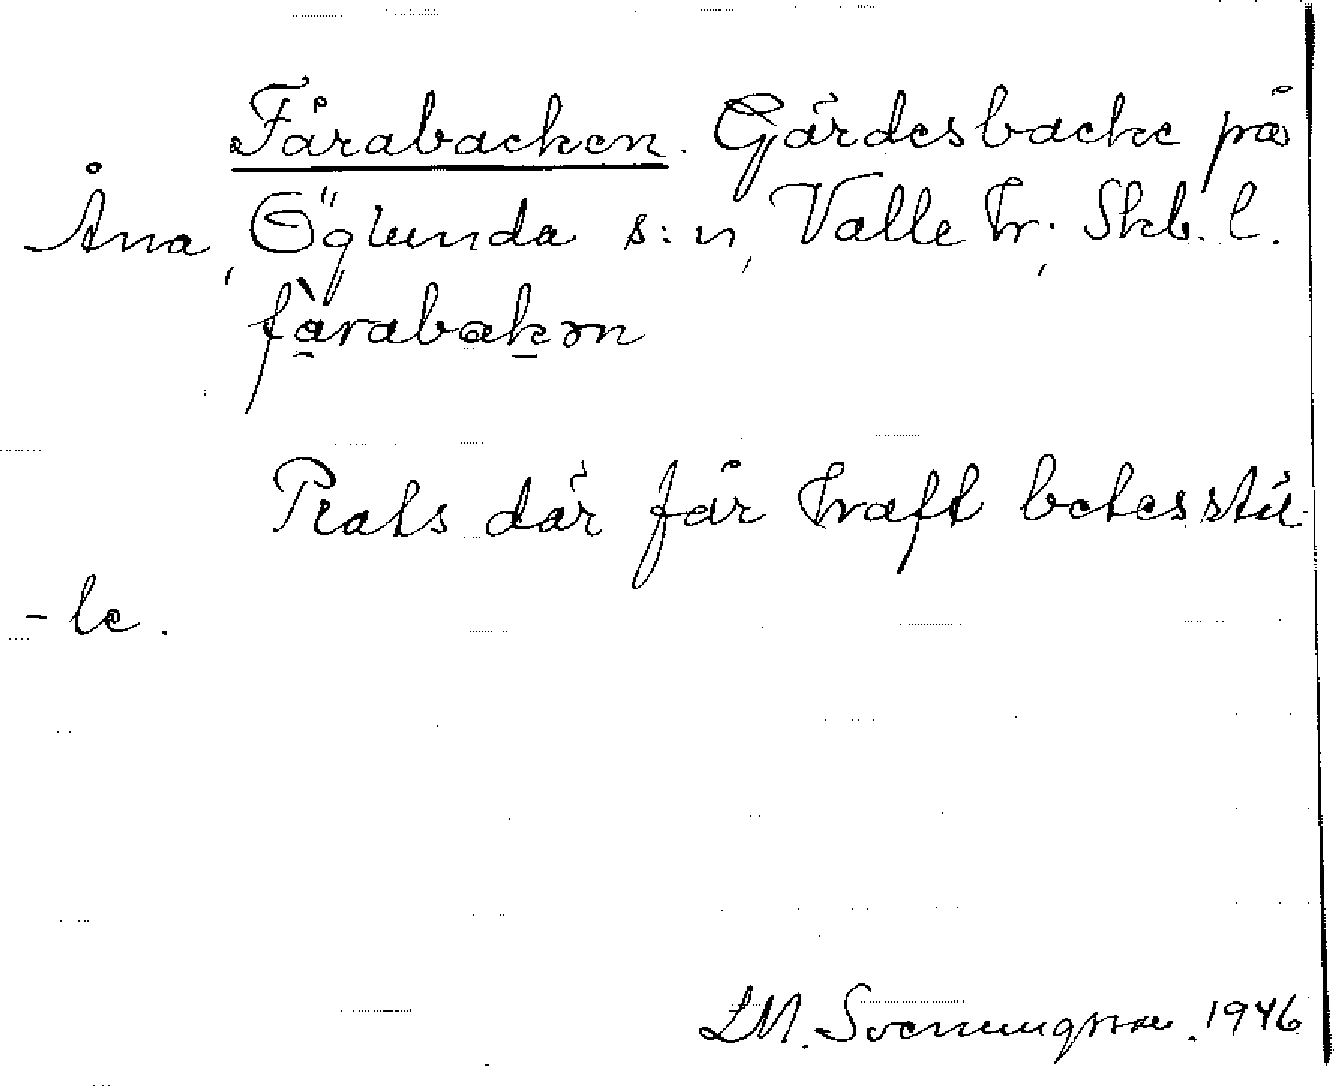 Fårabacken. Gärdesbacke på
Åna, Öglunda s:n, Valle hr, Skb. l.
fàrabakən
Plats där får haft betesstäl-
-le.
LM. Svenungsson. 1946